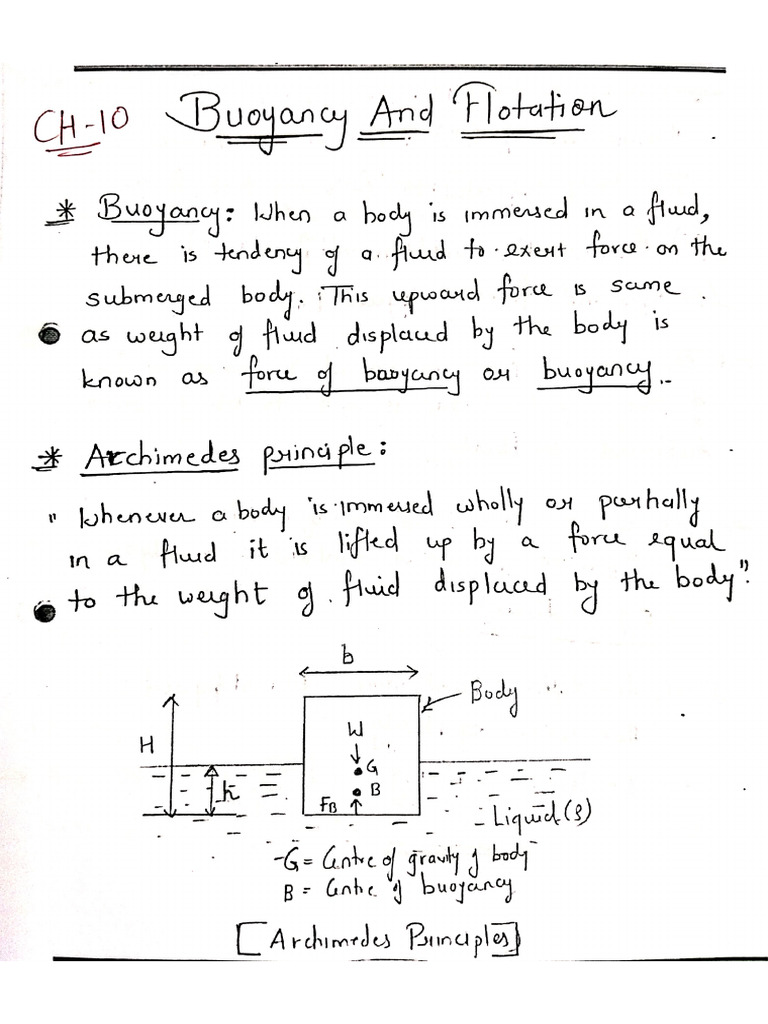 CH-10 Buoyancy And Flotation
* Buoyancy: When a body is immersed in a fluid,
there is tendency of a fluid to exert force on the
submerged body. This upward force is same
as weight of fluid displaced by the body is
known as force of baoyancy or buoyancy.
* Archimedes principle:
"Whenever a body is immersed wholly or partially
in a fluid it is lifted up by a force equal
to the weight of fluid displaced by the body".
b
Body
H
W
G
h
B
FB
Liquid (ρ)
G = Centre of gravity of body
B = Centre of buoyancy
[Archimedes Principles]